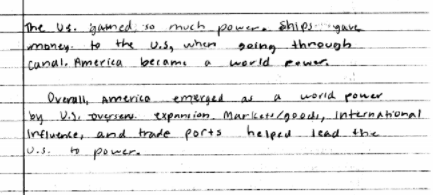 The U.S. gained so much power. Ships gave
money to the U.S, when going through
canal. America became a world power.
Overall, America emerged as a world power
by U.S. oversea expansion. Markets/goods, international
influence, and trade ports helped lead the
U.S. to power.